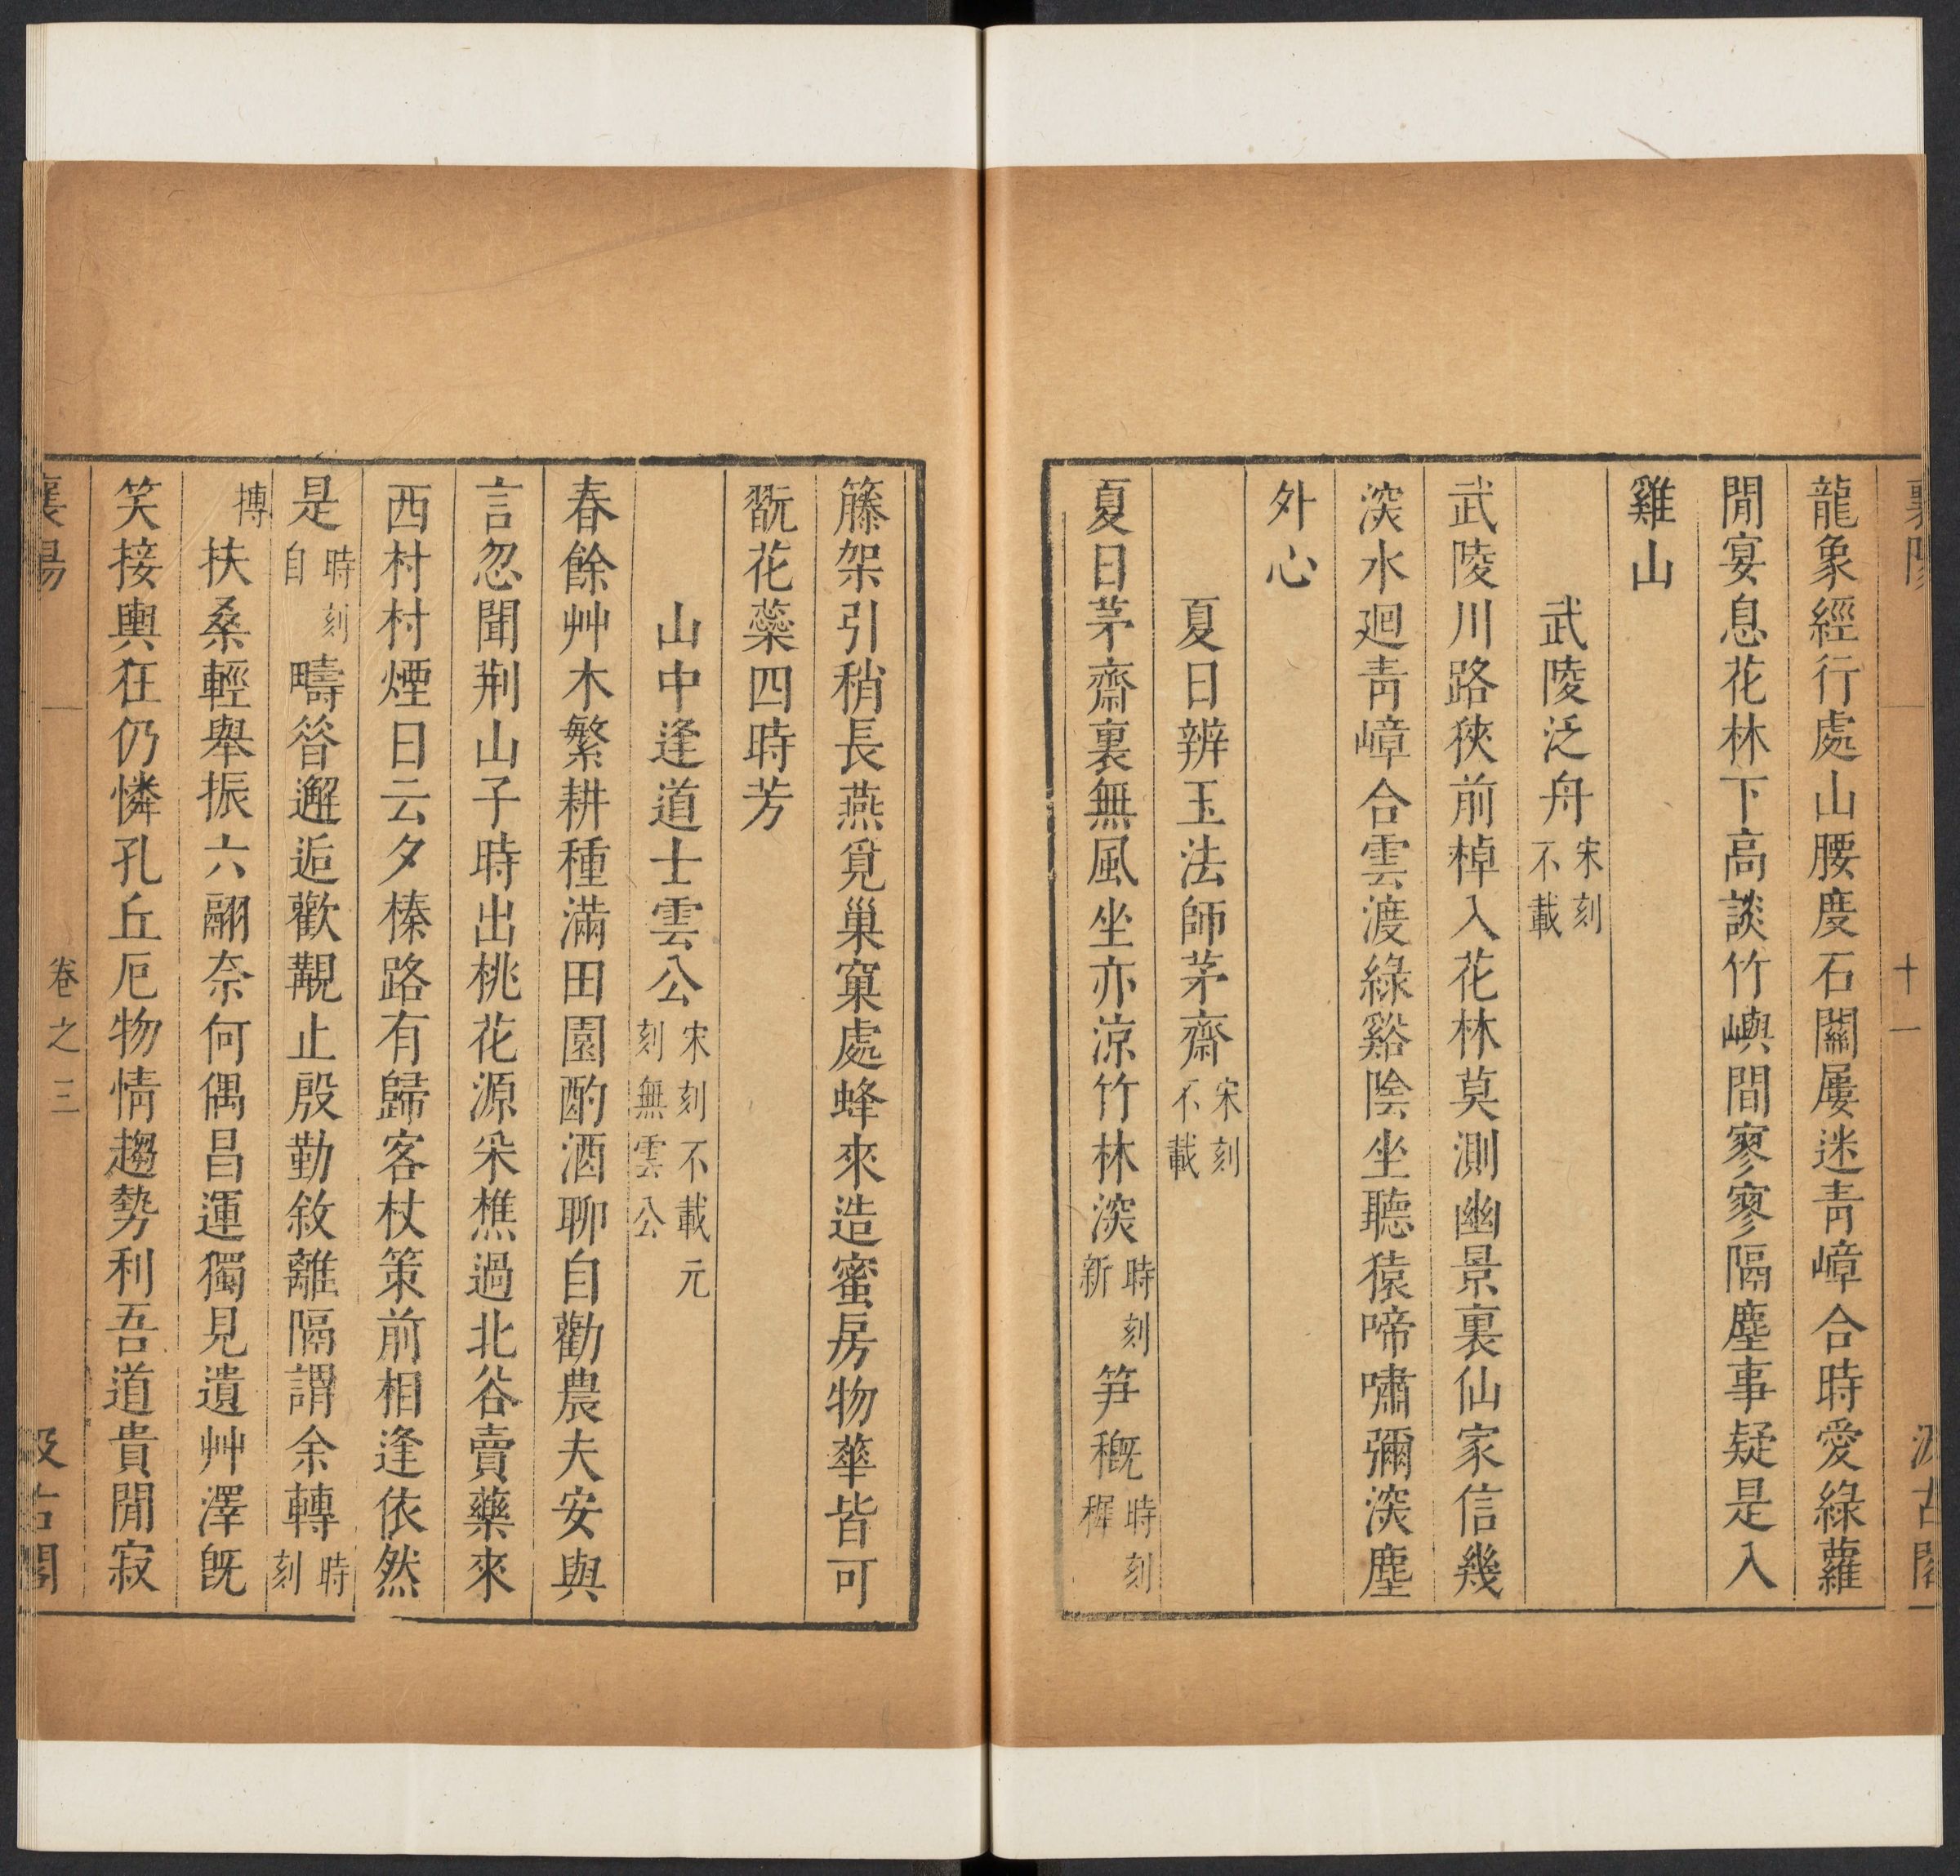 襄陽 十一 汲古閣
龍象經行處山腰度石關屢迷青嶂合時愛綠蘿
閒宴息花林下高談竹嶼間寥寥隔塵事疑是入
雞山
武陵泛舟宋刻不載
武陵川路狹前棹入花林莫測幽景裏仙家信幾
深水迴青嶂合雲渡綠谿陰坐聽猿啼嘯彌深塵
外心
夏日辨玉法師茅齋宋刻不載
夏日茅齋裏無風坐亦涼竹林深時刻新笋穊時刻穉
籐架引稍長燕覓巢窠處蜂來造蜜房物華皆可
翫花蘂四時芳
山中逢道士雲公宋刻不載元刻無雲公
春餘艸木繁耕種滿田園酌酒聊自勸農夫安與
言忽聞荆山子時出桃花源采樵過北谷賣藥來
西村村煙日云夕榛路有歸客杖策前相逢依然
是時刻自疇昝邂逅歡覯止殷勤敘離隔謂余轉時刻
搏扶桑輕舉振六翮奈何偶昌運獨見遺艸澤旣
笑接輿狂仍憐孔丘厄物情趨勢利吾道貴閒寂
襄陽 卷之三 汲古閣